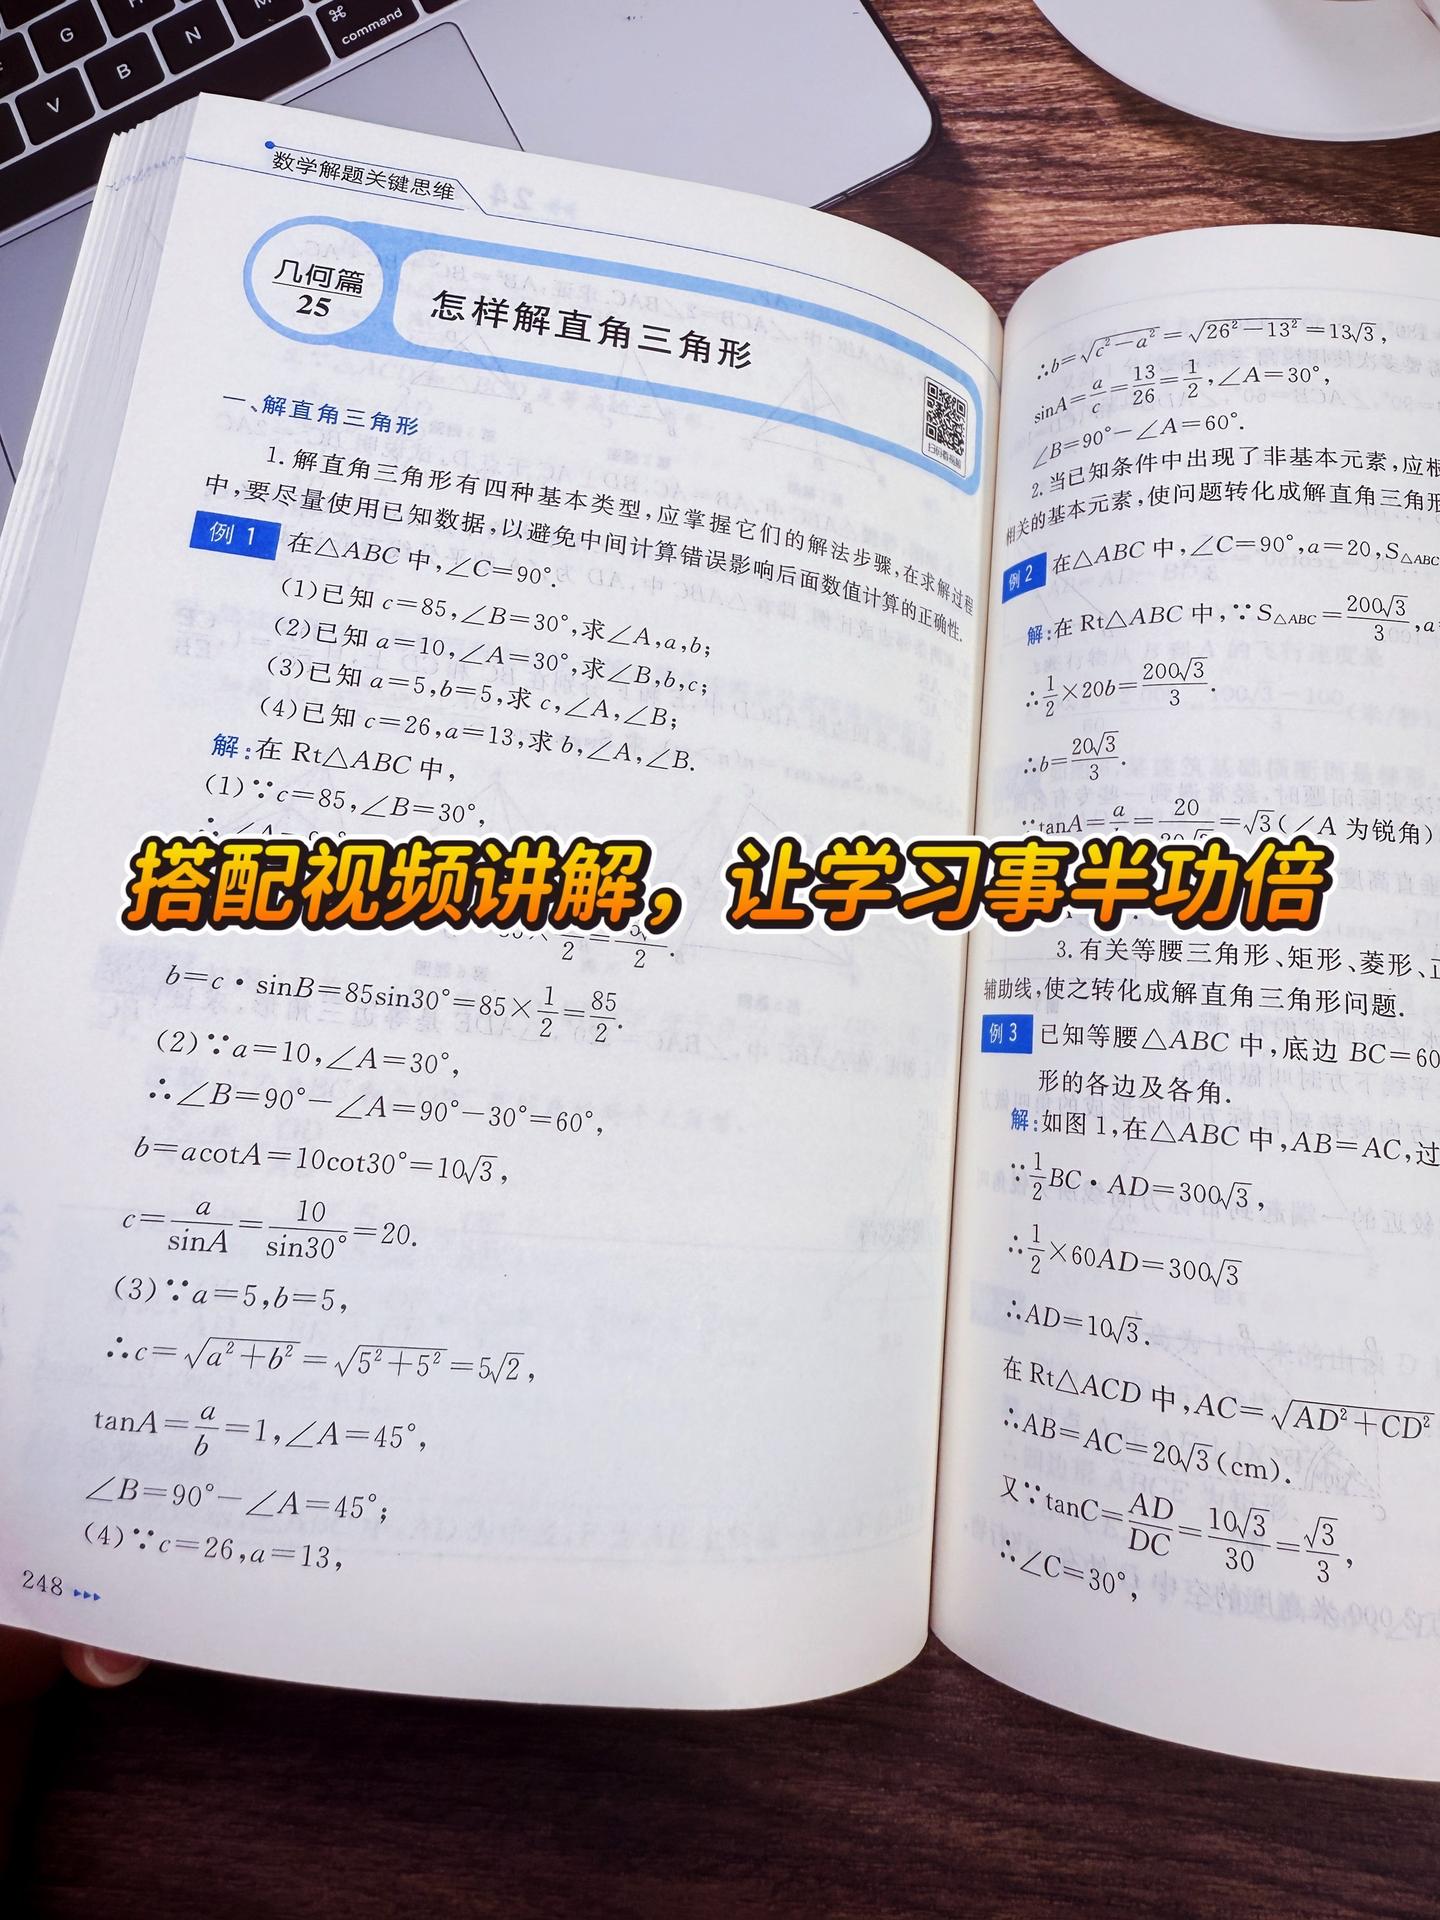 G
N
⌘
command
B
V
数学解题关键思维
几何篇
25
怎样解直角三角形
扫码看视频
一、解直角三角形
1.解直角三角形有四种基本类型,应掌握它们的解法步骤,在求解过程
中,要尽量使用已知数据,以避免中间计算错误影响后面数值计算的正确性.
例 1 在△ABC 中,∠C=90°.
(1)已知 c=85,∠B=30°,求∠A,a,b;
(2)已知 a=10,∠A=30°,求∠B,b,c;
(3)已知 a=5,b=5,求 c,∠A,∠B;
(4)已知 c=26,a=13,求 b,∠A,∠B.
解:在 Rt△ABC 中,
(1)∵c=85,∠B=30°,
搭配视频讲解，让学习事半功倍
b=c·sinB=85sin30°=85×1/2=85/2.
(2)∵a=10,∠A=30°,
∴∠B=90°-∠A=90°-30°=60°,
b=acotA=10cot30°=10√3,
c=a/sinA=10/sin30°=20.
(3)∵a=5,b=5,
∴c=√(a²+b²)=√(5²+5²)=5√2,
tanA=a/b=1,∠A=45°,
∠B=90°-∠A=45°;
(4)∵c=26,a=13,
248
∴b=√(c²-a²)=√(26²-13²)=13√3,
sinA=a/c=13/26=1/2,∠A=30°,
∠B=90°-∠A=60°.
2.当已知条件中出现了非基本元素,应根
相关的基本元素,使问题转化成解直角三角形
例 2 在△ABC 中,∠C=90°,a=20,S△ABC
解:在 Rt△ABC 中,∵S△ABC=200√3/3,a
∴1/2×20b=200√3/3.
∴b=20√3/3.
∵tanA=a/b=20/=√3(∠A 为锐角)
3.有关等腰三角形、矩形、菱形、正
辅助线,使之转化成解直角三角形问题.
例 3 已知等腰△ABC 中,底边 BC=60
形的各边及各角.
解:如图 1,在△ABC 中,AB=AC,过
∵1/2BC·AD=300√3,
∴1/2×60AD=300√3
∴AD=10√3.
在 Rt△ACD 中,AC=√(AD²+CD²)
∴AB=AC=20√3(cm).
又∵tanC=AD/DC=10√3/30=√3/3,
∴∠C=30°,